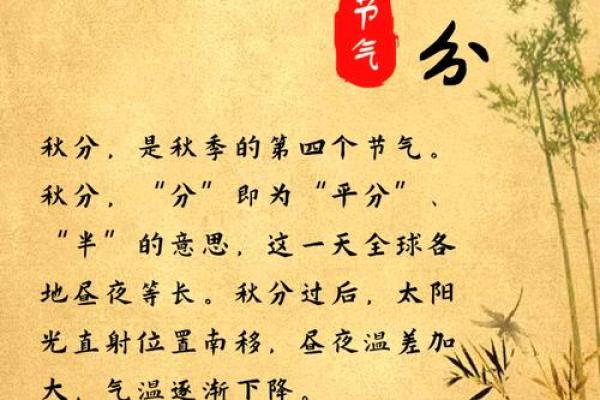 节气
分
秋分，是秋季的第四个节气。
秋分，“分”即为“平分”、
“半”的意思，这一天全球各
地昼夜等长。秋分过后，太阳
光直射位置南移，昼夜温差加
大，气温逐渐下降。